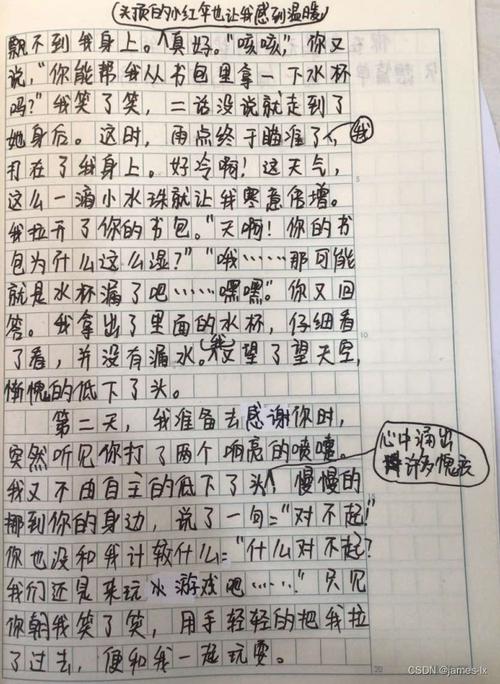 (头顶的小红伞也让我感到温暖)
飘不到我身上。真好。“咳咳,”你又
说,“你能帮我从书包里拿一下水杯
吗?”我笑了笑,二话没说就走到了
她身后。这时,雨点终于瞄准了我
打在了我身上。好冷啊!这天气,
这么一滴小水珠就让我寒意倍增。
我拉开了你的书包。“天啊!你的书
包为什么这么湿?”“哦……那可能
就是水杯漏了吧……嘿嘿。”你又回
答。我拿出了里面的水杯,仔细看
了看,并没有漏水。(我)又望了望天空,
惭愧的低下了头。
第二天,我准备去感谢你时,
突然听见你打了两个响亮的喷嚏。
心中涌出
许多愧疚
我又不由自主的低下了头,慢慢的
挪到你的身边,说了一句:“对不起!”
你也没和我计较什么:“什么对不起?
我们还是来玩水游戏吧……”只见
你朝我笑了笑,用手轻轻的把我拉
了过去,便和我一起玩耍。
5
10
20
CSDN @james-lx